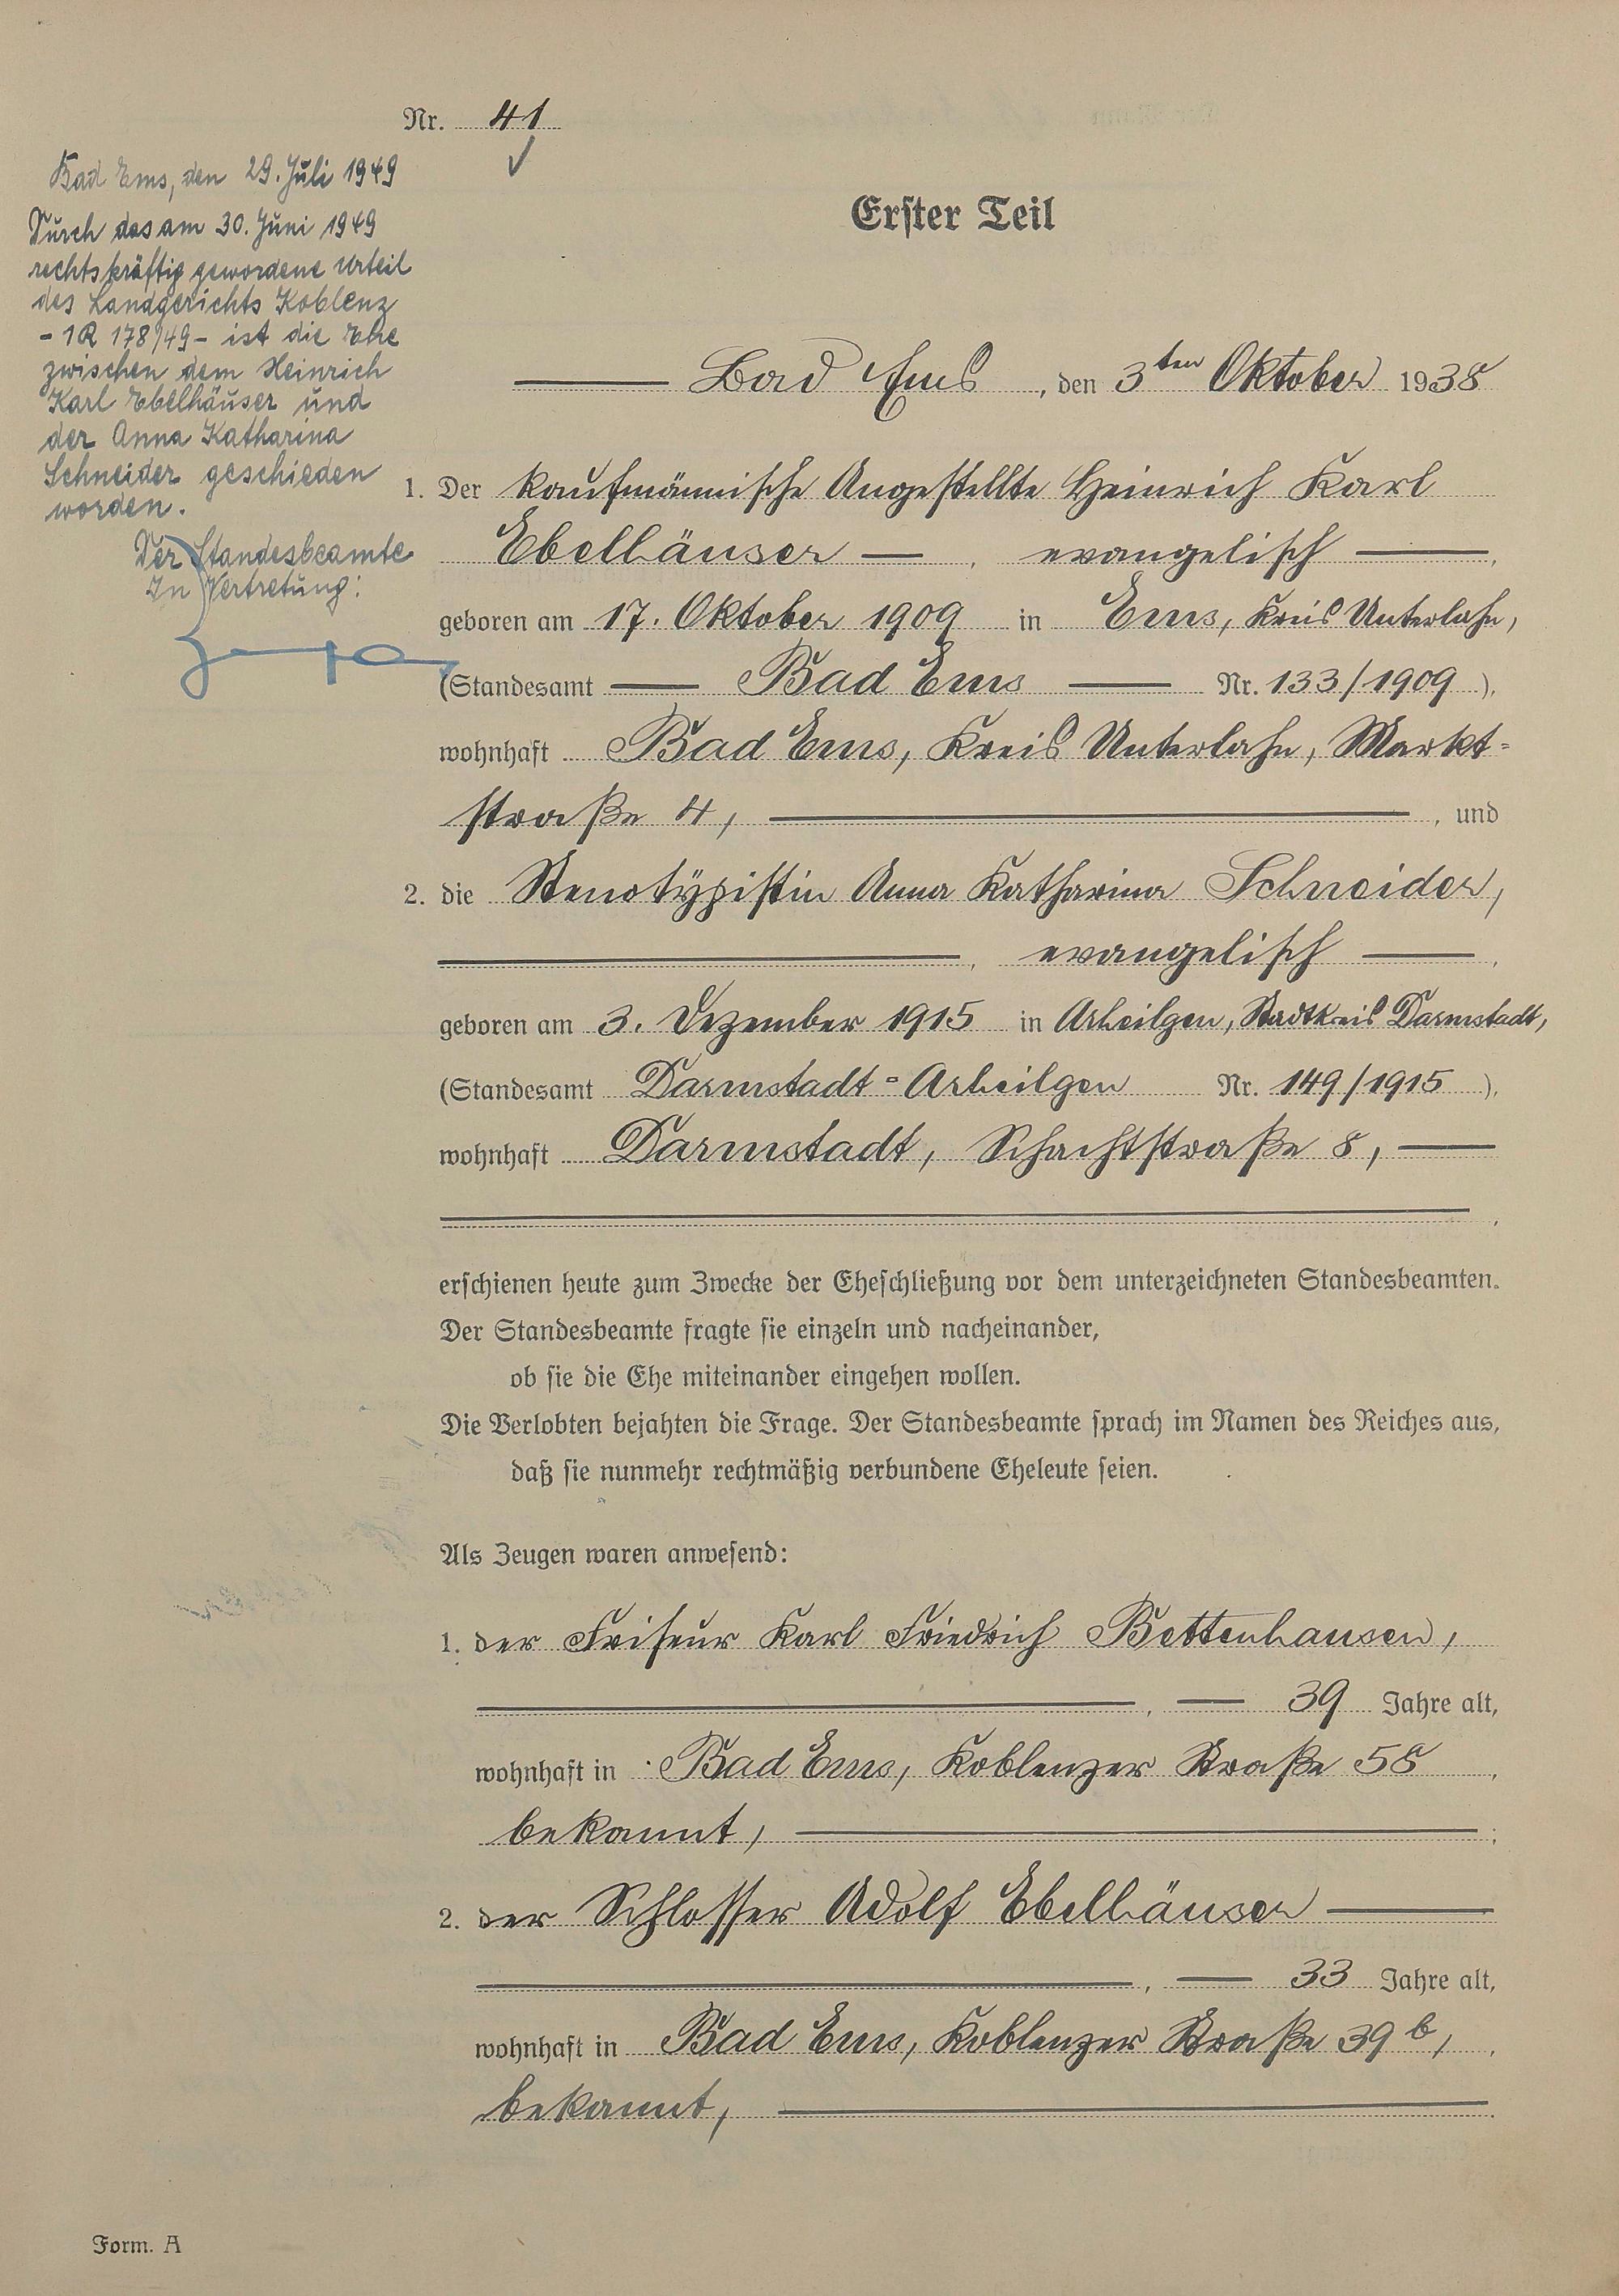 Nr. 41
Bad Ems, den 29. Juli 1949
Durch das am 30. Juni 1949
rechtskräftig gewordene Urteil
des Landgerichts Koblenz
- 1 R 178/49 - ist die Ehe
zwischen dem Heinrich
Karl Ebelhäuser und
der Anna Katharina
Schneider geschieden
worden.
Der Standesbeamte
In Vertretung:
Erster Teil
Bad Ems, den 3ten Oktober 1938
1. Der kaufmännische Angestellte Heinrich Karl
Ebelhäuser, evangelisch,
geboren am 17. Oktober 1909 in Ems, Kreis Unterlahn,
(Standesamt Bad Ems Nr. 133/1909),
wohnhaft Bad Ems, Kreis Unterlahn, Markt=
straße 4, , und
2. die Stenotypistin Anna Katharina Schneider,
, evangelisch,
geboren am 3. Dezember 1915 in Arheilgen, Stadtkreis Darmstadt,
(Standesamt Darmstadt=Arheilgen Nr. 149/1915),
wohnhaft Darmstadt, Schachtstraße 8,
erschienen heute zum Zwecke der Eheschließung vor dem unterzeichneten Standesbeamten.
Der Standesbeamte fragte sie einzeln und nacheinander,
ob sie die Ehe miteinander eingehen wollen.
Die Verlobten bejahten die Frage. Der Standesbeamte sprach im Namen des Reiches aus,
daß sie nunmehr rechtmäßig verbundene Eheleute seien.
Als Zeugen waren anwesend:
1. der Friseur Karl Friedrich Bettenhausen,
, 39 Jahre alt,
wohnhaft in Bad Ems, Koblenzer Straße 58,
bekannt, ;
2. der Schlosser Adolf Ebelhäuser
, 33 Jahre alt,
wohnhaft in Bad Ems, Koblenzer Straße 39b,
bekannt, .
Form. A